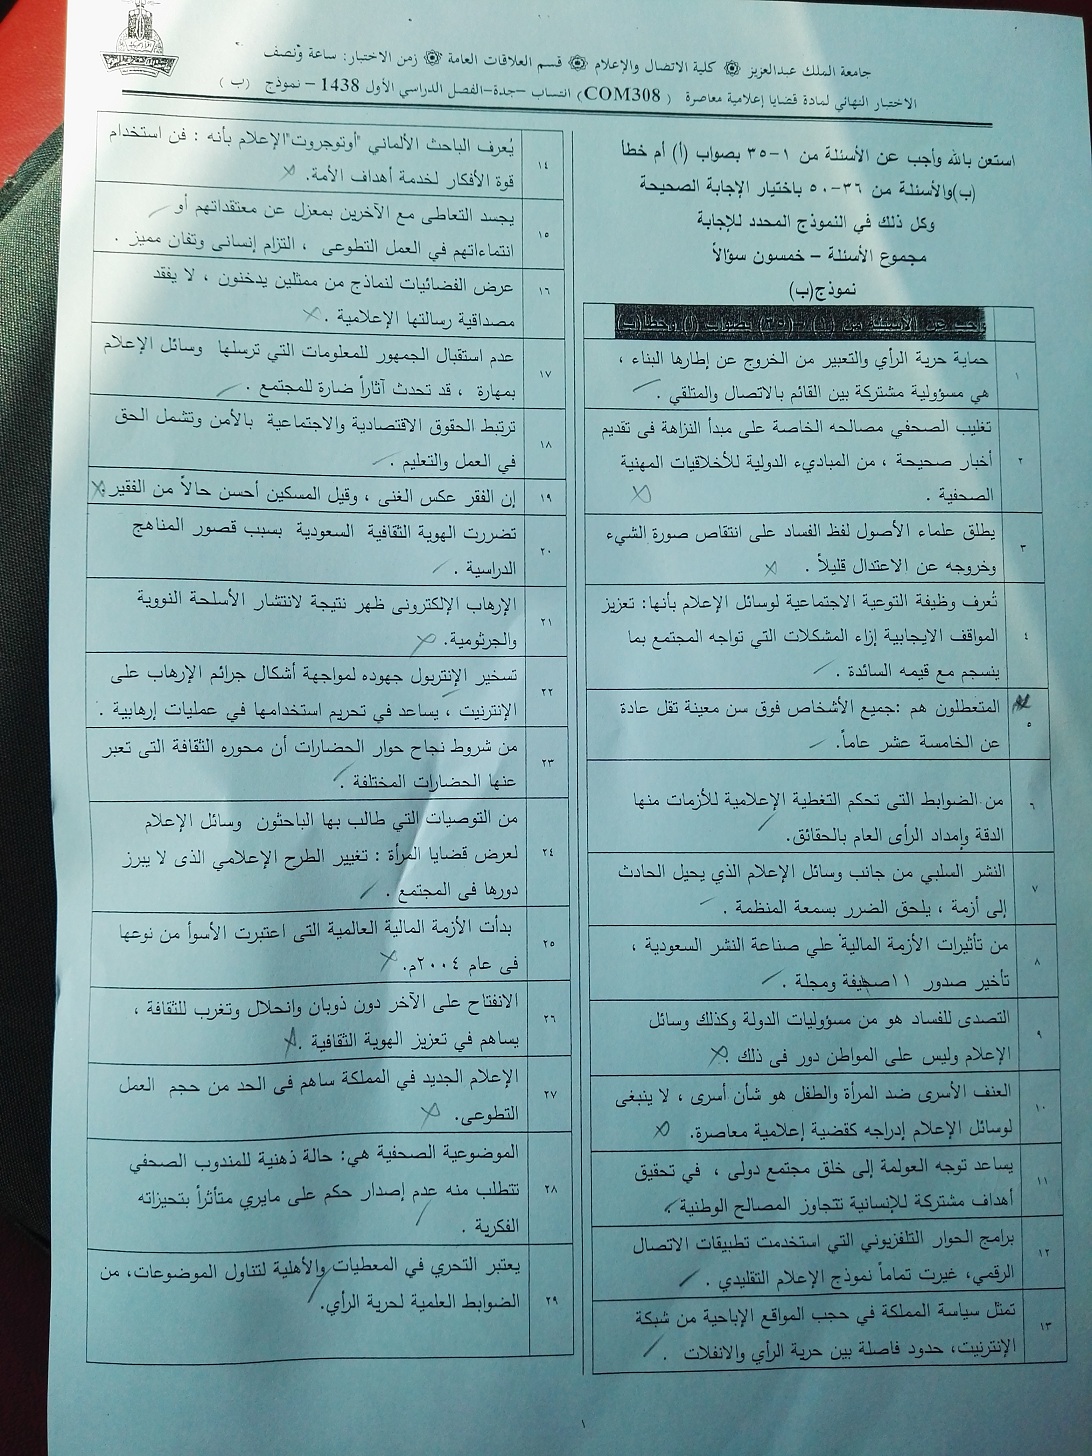 جامعة الملك عبدالعزيز ۞ كلية الاتصال والإعلام ۞ قسم العلاقات العامة ۞ زمن الاختبار: ساعة ونصف
الاختبار النهائي لمادة قضايا إعلامية معاصرة ( COM308) انتساب –جدة–الفصل الدراسي الأول 1438 – نموذج ( ب )
استعن بالله وأجب عن الأسئلة من ١-٣٥ بصواب (أ) أم خطأ
(ب)والأسئلة من ٣٦-٥٠ باختيار الإجابة الصحيحة
وكل ذلك في النموذج المحدد للإجابة
مجموع الأسئلة – خمسون سؤالاً
نموذج(ب)
أجب عن الأسئلة من (١) –(٣٥) بصواب (أ) وخطأ(ب)
١
حماية حرية الرأي والتعبير من الخروج عن إطارها البناء ،
هي مسؤولية مشتركة بين القائم بالاتصال والمتلقي .
٢
تغليب الصحفي مصالحه الخاصة على مبدأ النزاهة فى تقديم
أخبار صحيحة ، من المباديء الدولية للأخلاقيات المهنية
الصحفية .
٣
يطلق علماء الأصول لفظ الفساد على انتقاص صورة الشيء
وخروجه عن الاعتدال قليلاً .
٤
تُعرف وظيفة التوعية الاجتماعية لوسائل الإعلام بأنها: تعزيز
المواقف الايجابية إزاء المشكلات التي تواجه المجتمع بما
ينسجم مع قيمه السائدة .
٥
المتعطلون هم :جميع الأشخاص فوق سن معينة تقل عادة
عن الخامسة عشر عاماً.
٦
من الضوابط التى تحكم التغطية الإعلامية للأزمات منها
الدقة وإمداد الرأى العام بالحقائق.
٧
النشر السلبي من جانب وسائل الإعلام الذي يحيل الحادث
إلى أزمة ، يلحق الضرر بسمعة المنظمة .
٨
من تأثيرات الأزمة المالية على صناعة النشر السعودية ،
تأخير صدور ١١صحيفة ومجلة .
٩
التصدى للفساد هو من مسؤوليات الدولة وكذلك وسائل
الإعلام وليس على المواطن دور فى ذلك .
١٠
العنف الأسرى ضد المرأة والطفل هو شأن أسرى ، لا ينبغى
لوسائل الإعلام إدراجه كقضية إعلامية معاصرة.
١١
يساعد توجه العولمة إلى خلق مجتمع دولى ، في تحقيق
أهداف مشتركة للإنسانية تتجاوز المصالح الوطنية .
١٢
برامج الحوار التلفزيوني التي استخدمت تطبيقات الاتصال
الرقمي، غيرت تماماً نموذج الإعلام التقليدي .
١٣
تمثل سياسة المملكة في حجب المواقع الإباحية من شبكة
الإنترنيت، حدود فاصلة بين حرية الرأي والانفلات .
١٤
يُعرف الباحث الألماني "أوتوجروت"الإعلام بأنه : فن استخدام
قوة الأفكار لخدمة أهداف الأمة.
١٥
يجسد التعاطى مع الآخرين بمعزل عن معتقداتهم أو
انتماءاتهم في العمل التطوعى ، التزام إنسانى وتفان مميز .
١٦
عرض الفضائيات لنماذج من ممثلين يدخنون ، لا يفقد
مصداقية رسالتها الإعلامية .
١٧
عدم استقبال الجمهور للمعلومات التي ترسلها وسائل الإعلام
بمهارة ، قد تحدث آثاراً ضارة للمجتمع .
١٨
ترتبط الحقوق الاقتصادية والاجتماعية بالأمن وتشمل الحق
في العمل والتعليم .
١٩
إن الفقر عكس الغنى ، وقيل المسكين أحسن حالاً من الفقير.
٢٠
تضررت الهوية الثقافية السعودية بسبب قصور المناهج
الدراسية .
٢١
الإرهاب الإلكترونى ظهر نتيجة لانتشار الأسلحة النووية
والجرثومية.
٢٢
تسخير الإنتربول جهوده لمواجهة أشكال جرائم الإرهاب على
الإنترنيت ، يساعد في تحريم استخدامها في عمليات إرهابية .
٢٣
من شروط نجاح حوار الحضارات أن محوره الثقافة التى تعبر
عنها الحضارات المختلفة .
٢٤
من التوصيات التي طالب بها الباحثون وسائل الإعلام
لعرض قضايا المرأة : تغيير الطرح الإعلامي الذى لا يبرز
دورها فى المجتمع .
٢٥
بدأت الأزمة المالية العالمية التى اعتبرت الأسوأ من نوعها
فى عام ٢٠٠٤م.
٢٦
الانفتاح على الآخر دون ذوبان وانحلال وتغرب للثقافة ،
يساهم في تعزيز الهوية الثقافية .
٢٧
الإعلام الجديد في المملكة ساهم فى الحد من حجم العمل
التطوعى.
٢٨
الموضوعية الصحفية هي: حالة ذهنية للمندوب الصحفي
تتطلب منه عدم إصدار حكم على مايري متأثراً بتحيزاته
الفكرية .
٢٩
يعتبر التحري في المعطيات والأهلية لتناول الموضوعات، من
الضوابط العلمية لحرية الرأي.
١